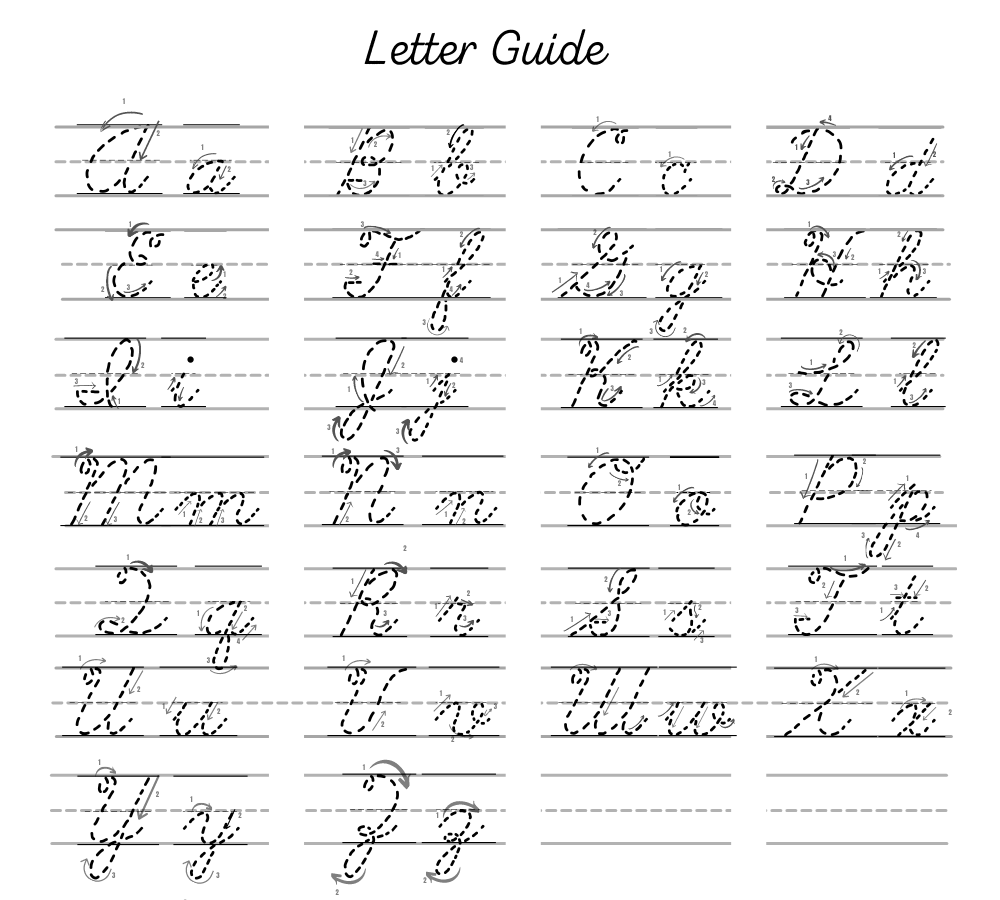 Letter Guide
A a B b C c D d
E e F f G g H h
I i J j K k L l
M m N n O o P p
Q q R r S s T t
U u V v W w X x
Y y Z z